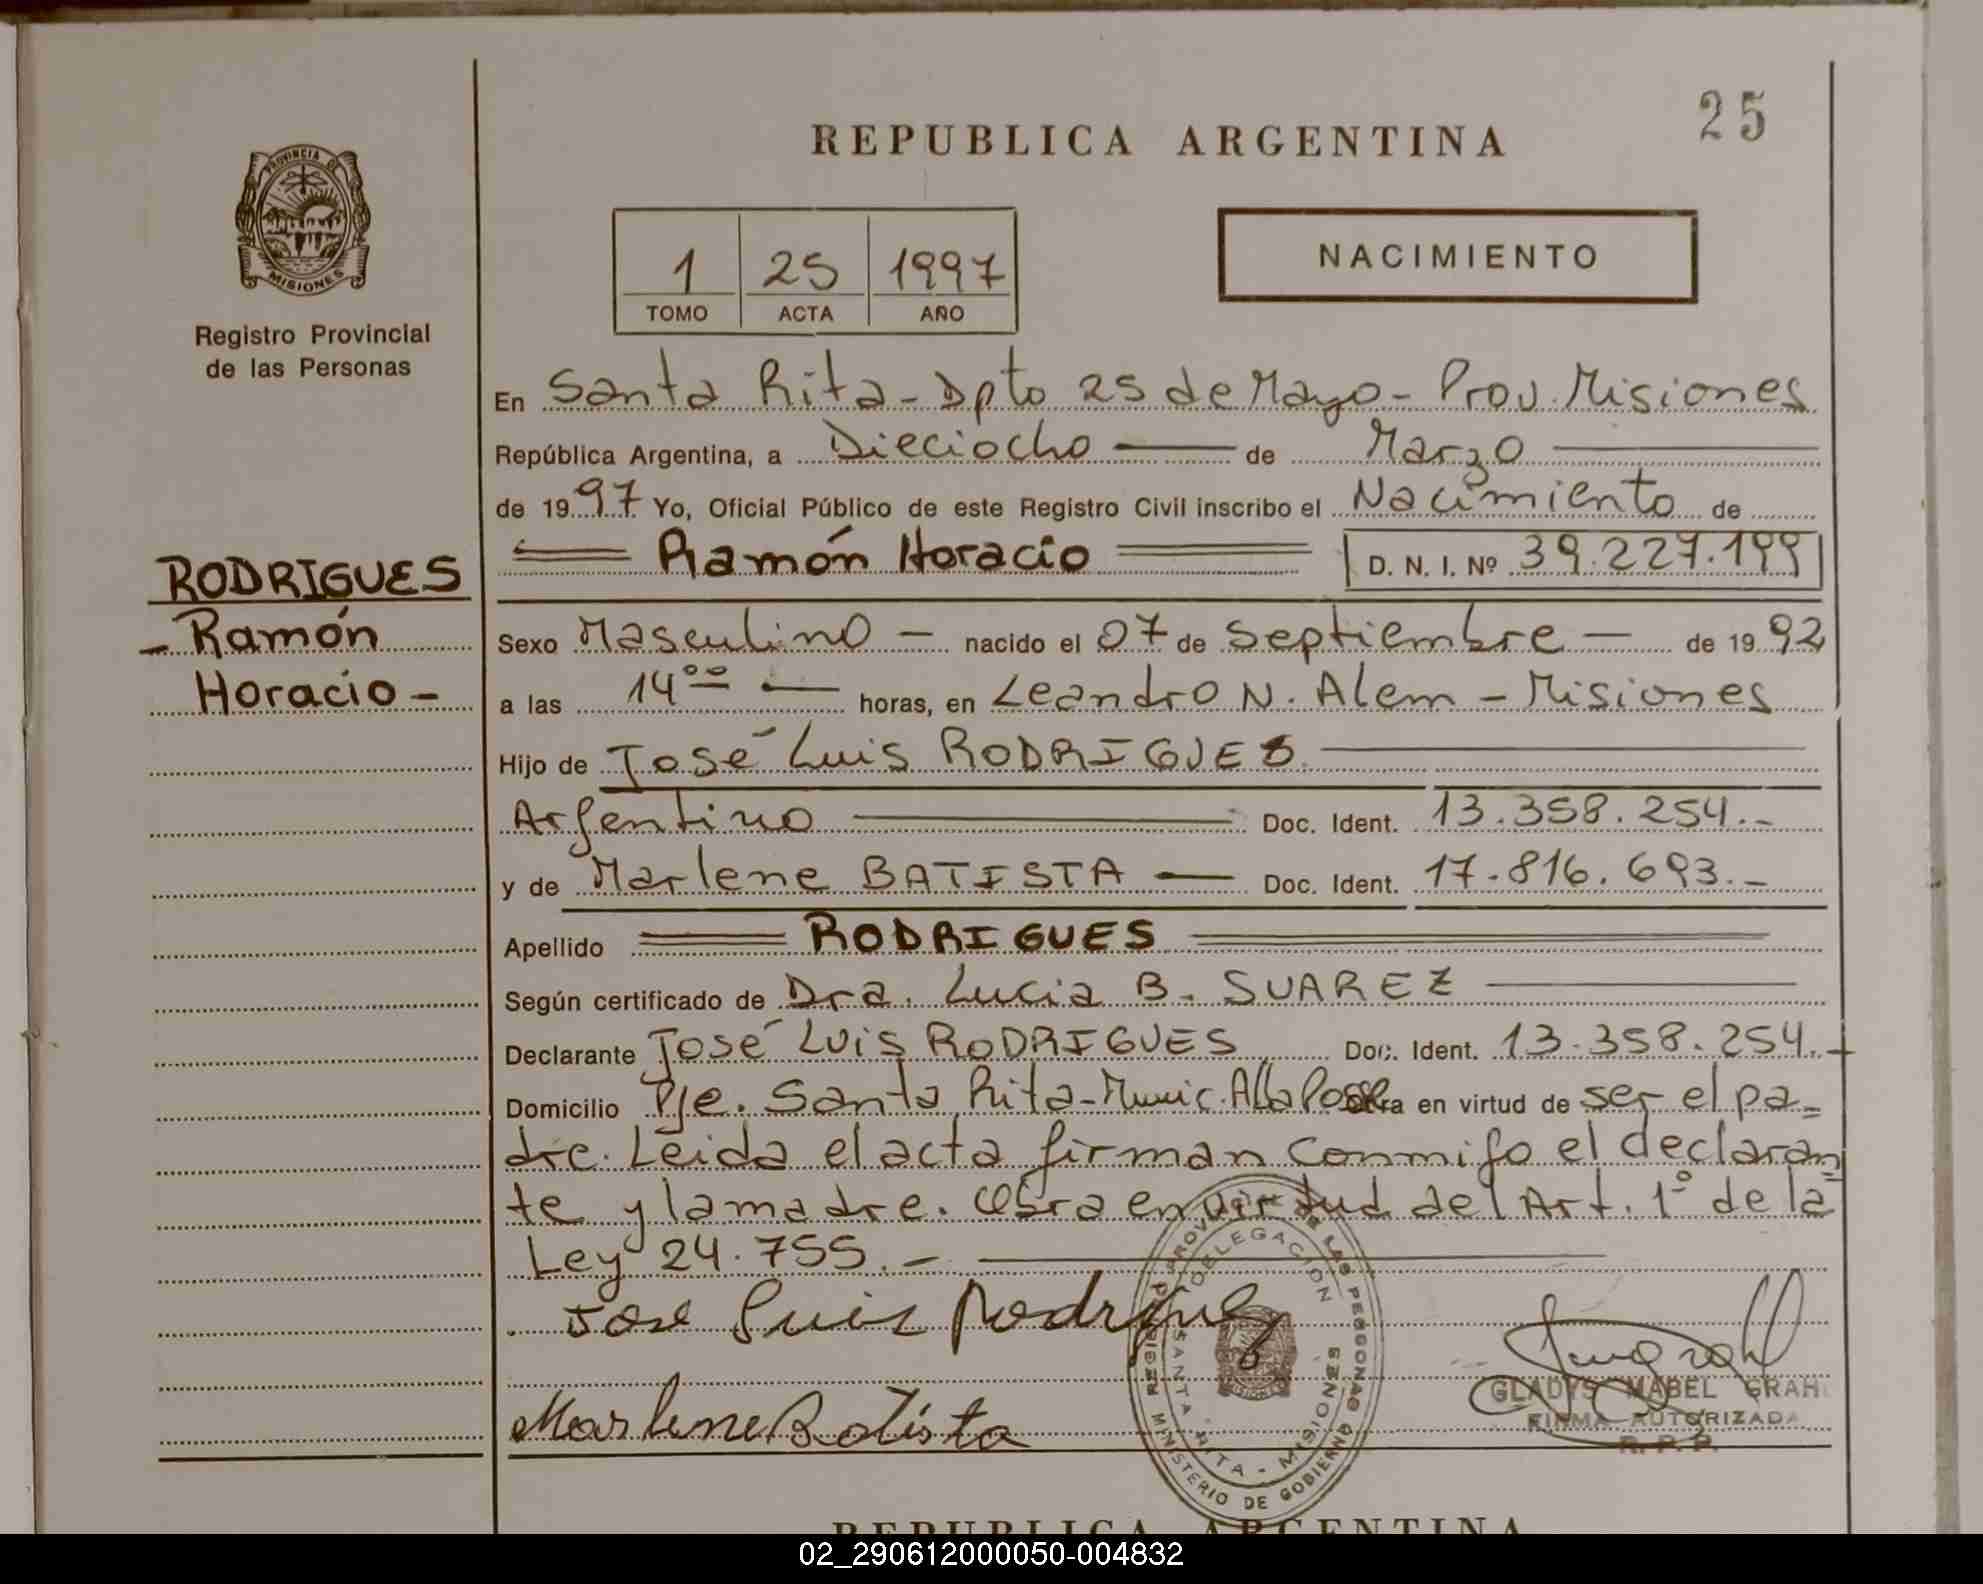 25
REPUBLICA ARGENTINA
PROVINCIA DE
MISIONES
Registro Provincial
de las Personas
1 25 1997
TOMO ACTA AÑO
NACIMIENTO
En Santa Rita - Dpto 25 de Mayo - Prov. Misiones
República Argentina, a Dieciocho — de Marzo —
de 1997 Yo, Oficial Público de este Registro Civil inscribo el Nacimiento de
Ramón Horacio D. N. I. Nº 39.227.199
RODRIGUES
- Ramón
Horacio -
Sexo Masculino — nacido el 07 de Septiembre — de 1992
a las 14°° — horas, en Leandro N. Alem - Misiones
Hijo de José Luis RODRIGUES
Argentino — Doc. Ident. 13.358.254.-
y de Marlene BATISTA — Doc. Ident. 17.816.693.-
Apellido RODRIGUES
Según certificado de Dra. Lucia B. SUAREZ
Declarante José Luis RODRIGUES Doc. Ident. 13.358.254.-
Domicilio Pje. Santa Rita - Munic. Alba Posse obra en virtud de ser el pa=
dre. Leida el acta firman conmigo el declaran=
te y la madre. Obra en virtud del Art. 1° de la
Ley 24.755.-
Jose Luis Rodrigues
Marlene Batista
DELEGACION
SANTA RITA - MISIONES
MINISTERIO DE GOBIERNO
GLADYS MABEL GRAH
FIRMA AUTORIZADA
R. P. P.
REPUBLICA ARGENTINA
02_290612000050-004832